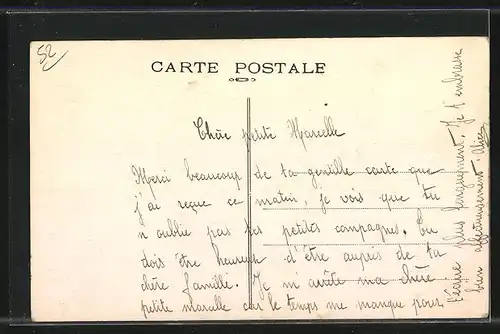 52
CARTE POSTALE
Chère petite Marcelle
Merci beaucoup de ta gentille carte que
j'ai reçue ce matin, je vois que tu
n oublie pas tes petites compagnes. Tu
dois être heureuse d'être auprès de ta
chère famille. Je m'arrête ma chère
petite marcelle car le temps me manque pour
t'écrire plus longuement. Je t'embrasse
bien affectueusement